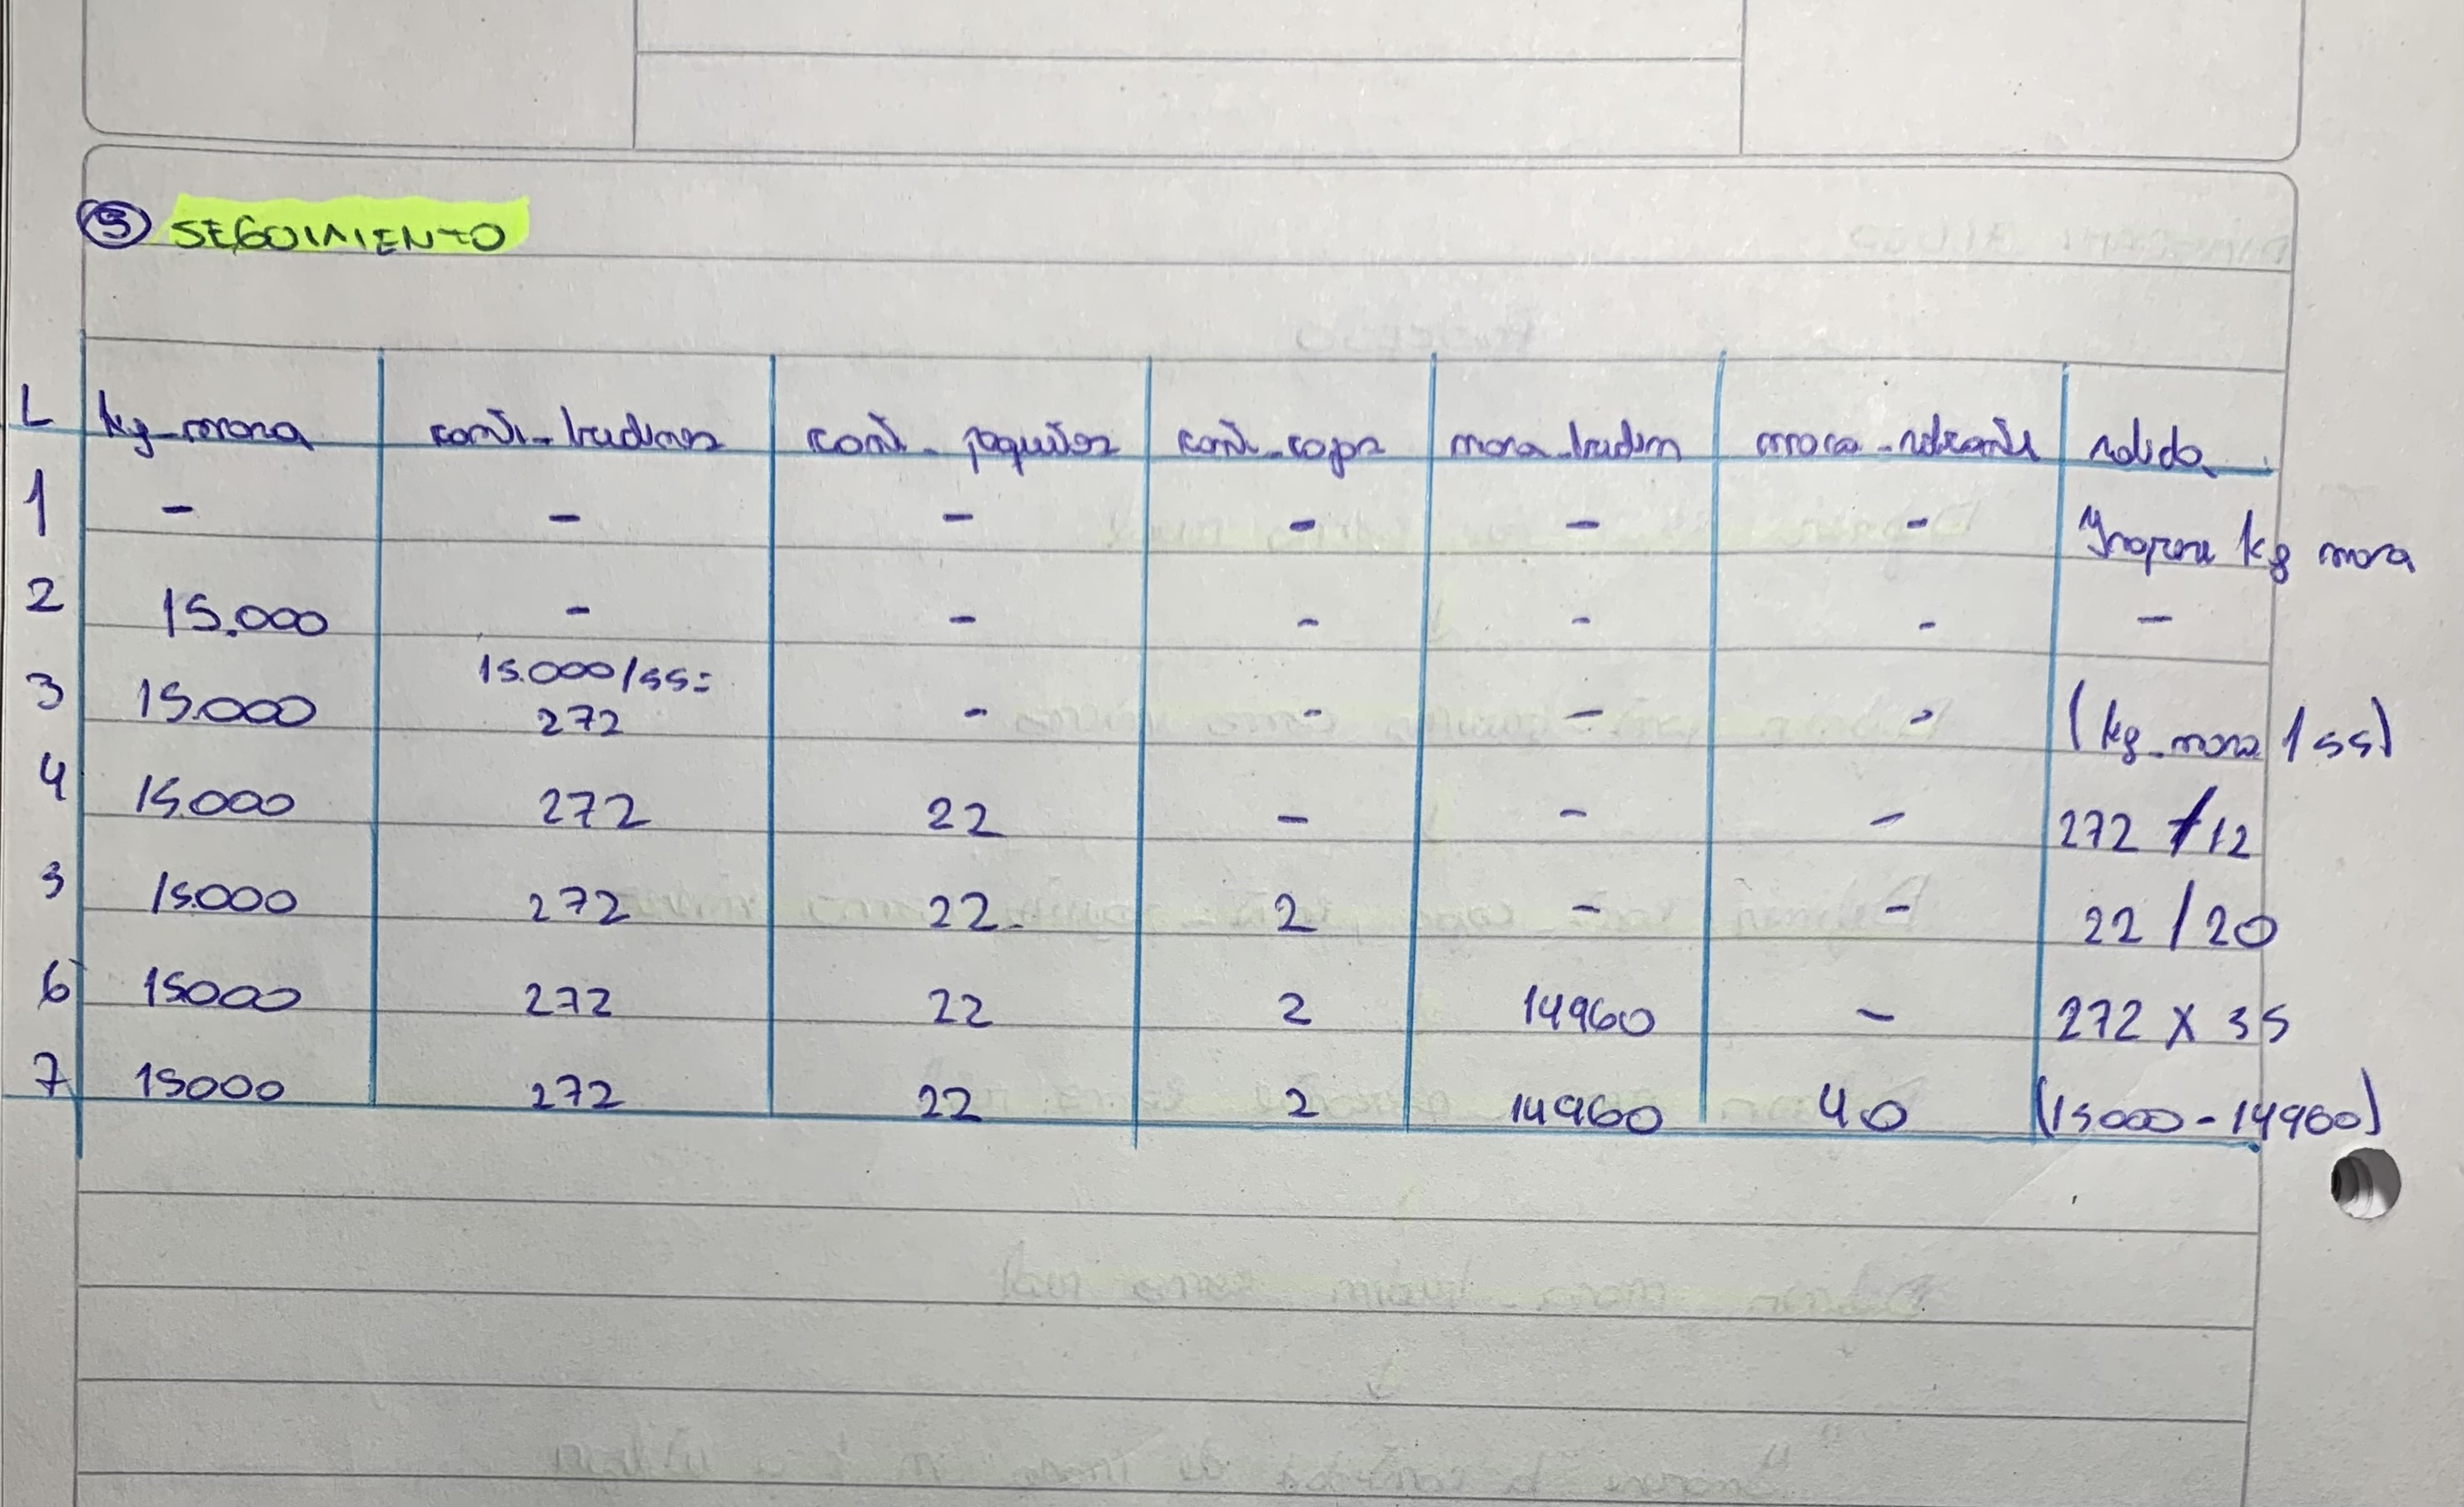 5 SEGUIMIENTO
L kg_masa cant_budines cant_paquetes cant_cajas masa_budin masa_sobrante salida
1 - - - - - - Ingrese kg masa
2 15.000 - - - - - -
15.000/55=
3 15.000 272 - - - - (kg_masa/55)
4 15.000 272 22 - - - 272/12
5 15.000 272 22 2 - - 22/20
6 15000 272 22 2 14960 - 272 X 55
7 15000 272 22 2 14960 40 (15000-14960)